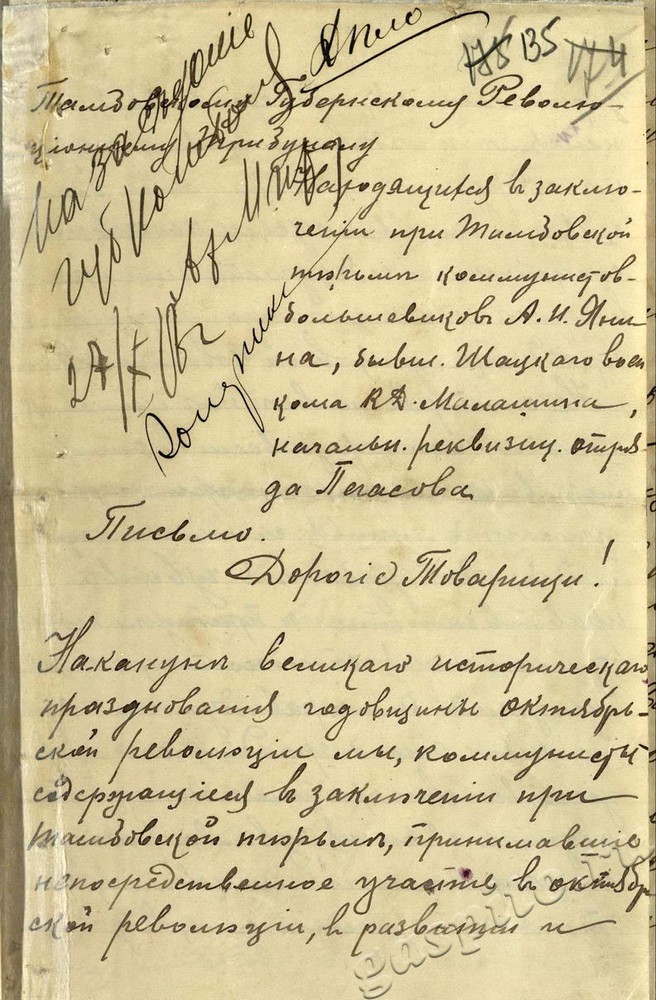 175 135 174
Тамбовскому Губернскому Револю-
ціонному Трибуналу
На заседание
Губкома
Дело
27/X 18 г
Находящихся в заклю-
ченіи при Тамбовской
тюрьмѣ коммунистов-
большевиковъ А. И. Яни
на, бывш. Шацкаго воен
кома К.Д. Малашина,
начальн. реквизиц. отря-
да Пегасова
Письмо.
Дорогіе Товарищи!
Наканунѣ великаго историческаго
празднованія годовщины октябрь-
ской революціи мы, коммунисты
содержащіеся въ заключеніи при
Тамбовской тюрьмѣ, принимавшіе
непосредственное участіе въ октябрь
ской революціи, в развитіи и